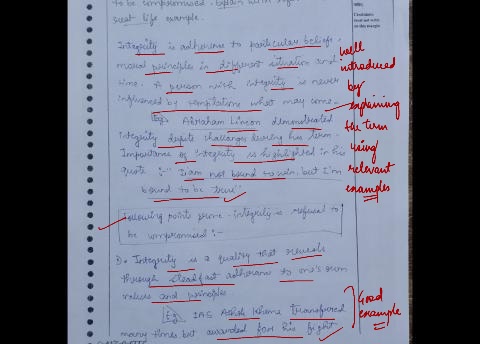 to be compromised. Explain with
real life example.
Candidates
must not write
on this margin
Integrity is adherence to particular beliefs,
moral principles in different situation and
time. A person with integrity is never
influenced by temptations what may come.
Eg: Abraham Lincon demonstrated
integrity depite challanges during his term.
Importance of integrity is highlighted in his
quote :- "I am not bound to win, but I'm
bound to be true"
Following point prove - integrity is refused to
be compromised :-
1). Integrity is a quality that reveals
through steadfast adherence to one's own
values and principles
Eg. IAS Ashok Khema transfered
many times but awarded for his fight
well
introduced
by
explaining
the term
using
relevant
examples
Good
example